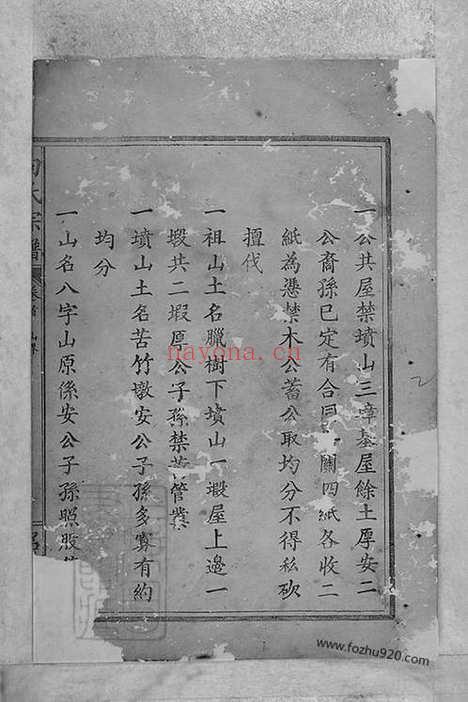 一公共屋禁墳山三嶂基屋餘土厚安二
公裔孫已定有合同 關四紙各收二
紙為憑禁木公蓄公取均分不得私砍
擅伐
一祖山土名臘樹下墳山一塅屋上邊一
塅共二塅厚公子孫禁 管業
一墳山土名苦竹墩安公子孫多寡有約
均分
一山名八字山原係安公子孫照股
氏宗譜
nayona.cn
2
www.fozhu920.com